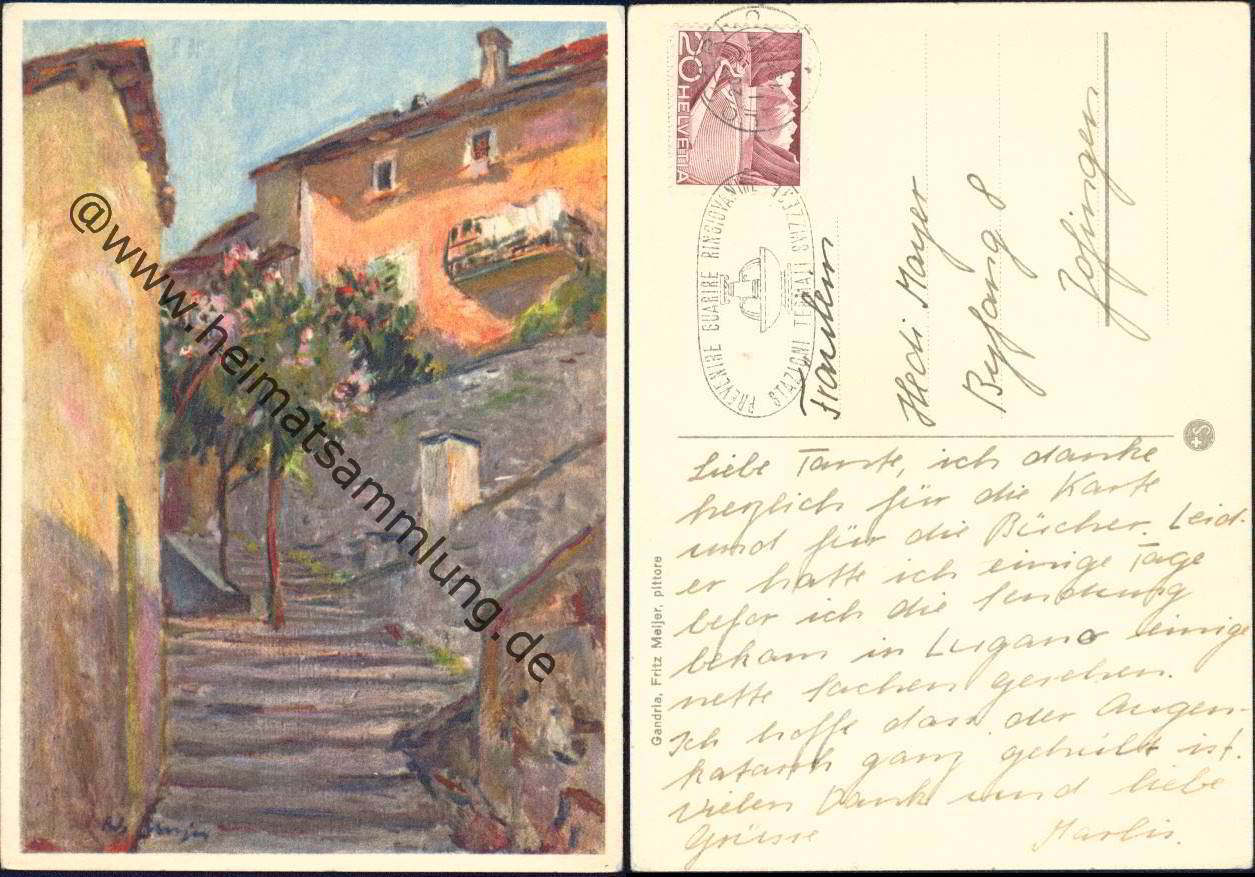 @www.heimatsammlung.de
20 HELVETIA
PREVENIRE GUARIRE RINGIOVANIRE
STAZIONI TERMALI SVIZZERE
Fräulein
Hedi Mayer
Byfang 8
Zofingen
Gandria, Fritz Meijer, pittore
Liebe Tante, ich danke
herzlich für die Karte
und für die Bücher. Leid-
er hatte ich einige Tage
befor ich die Sendung
bekam in Lugano einige
nette Sachen gesehen.
Ich hoffe dass der Augen-
katarrh ganz geheilt ist.
Vielen Dank und liebe
Grüsse Marlis.